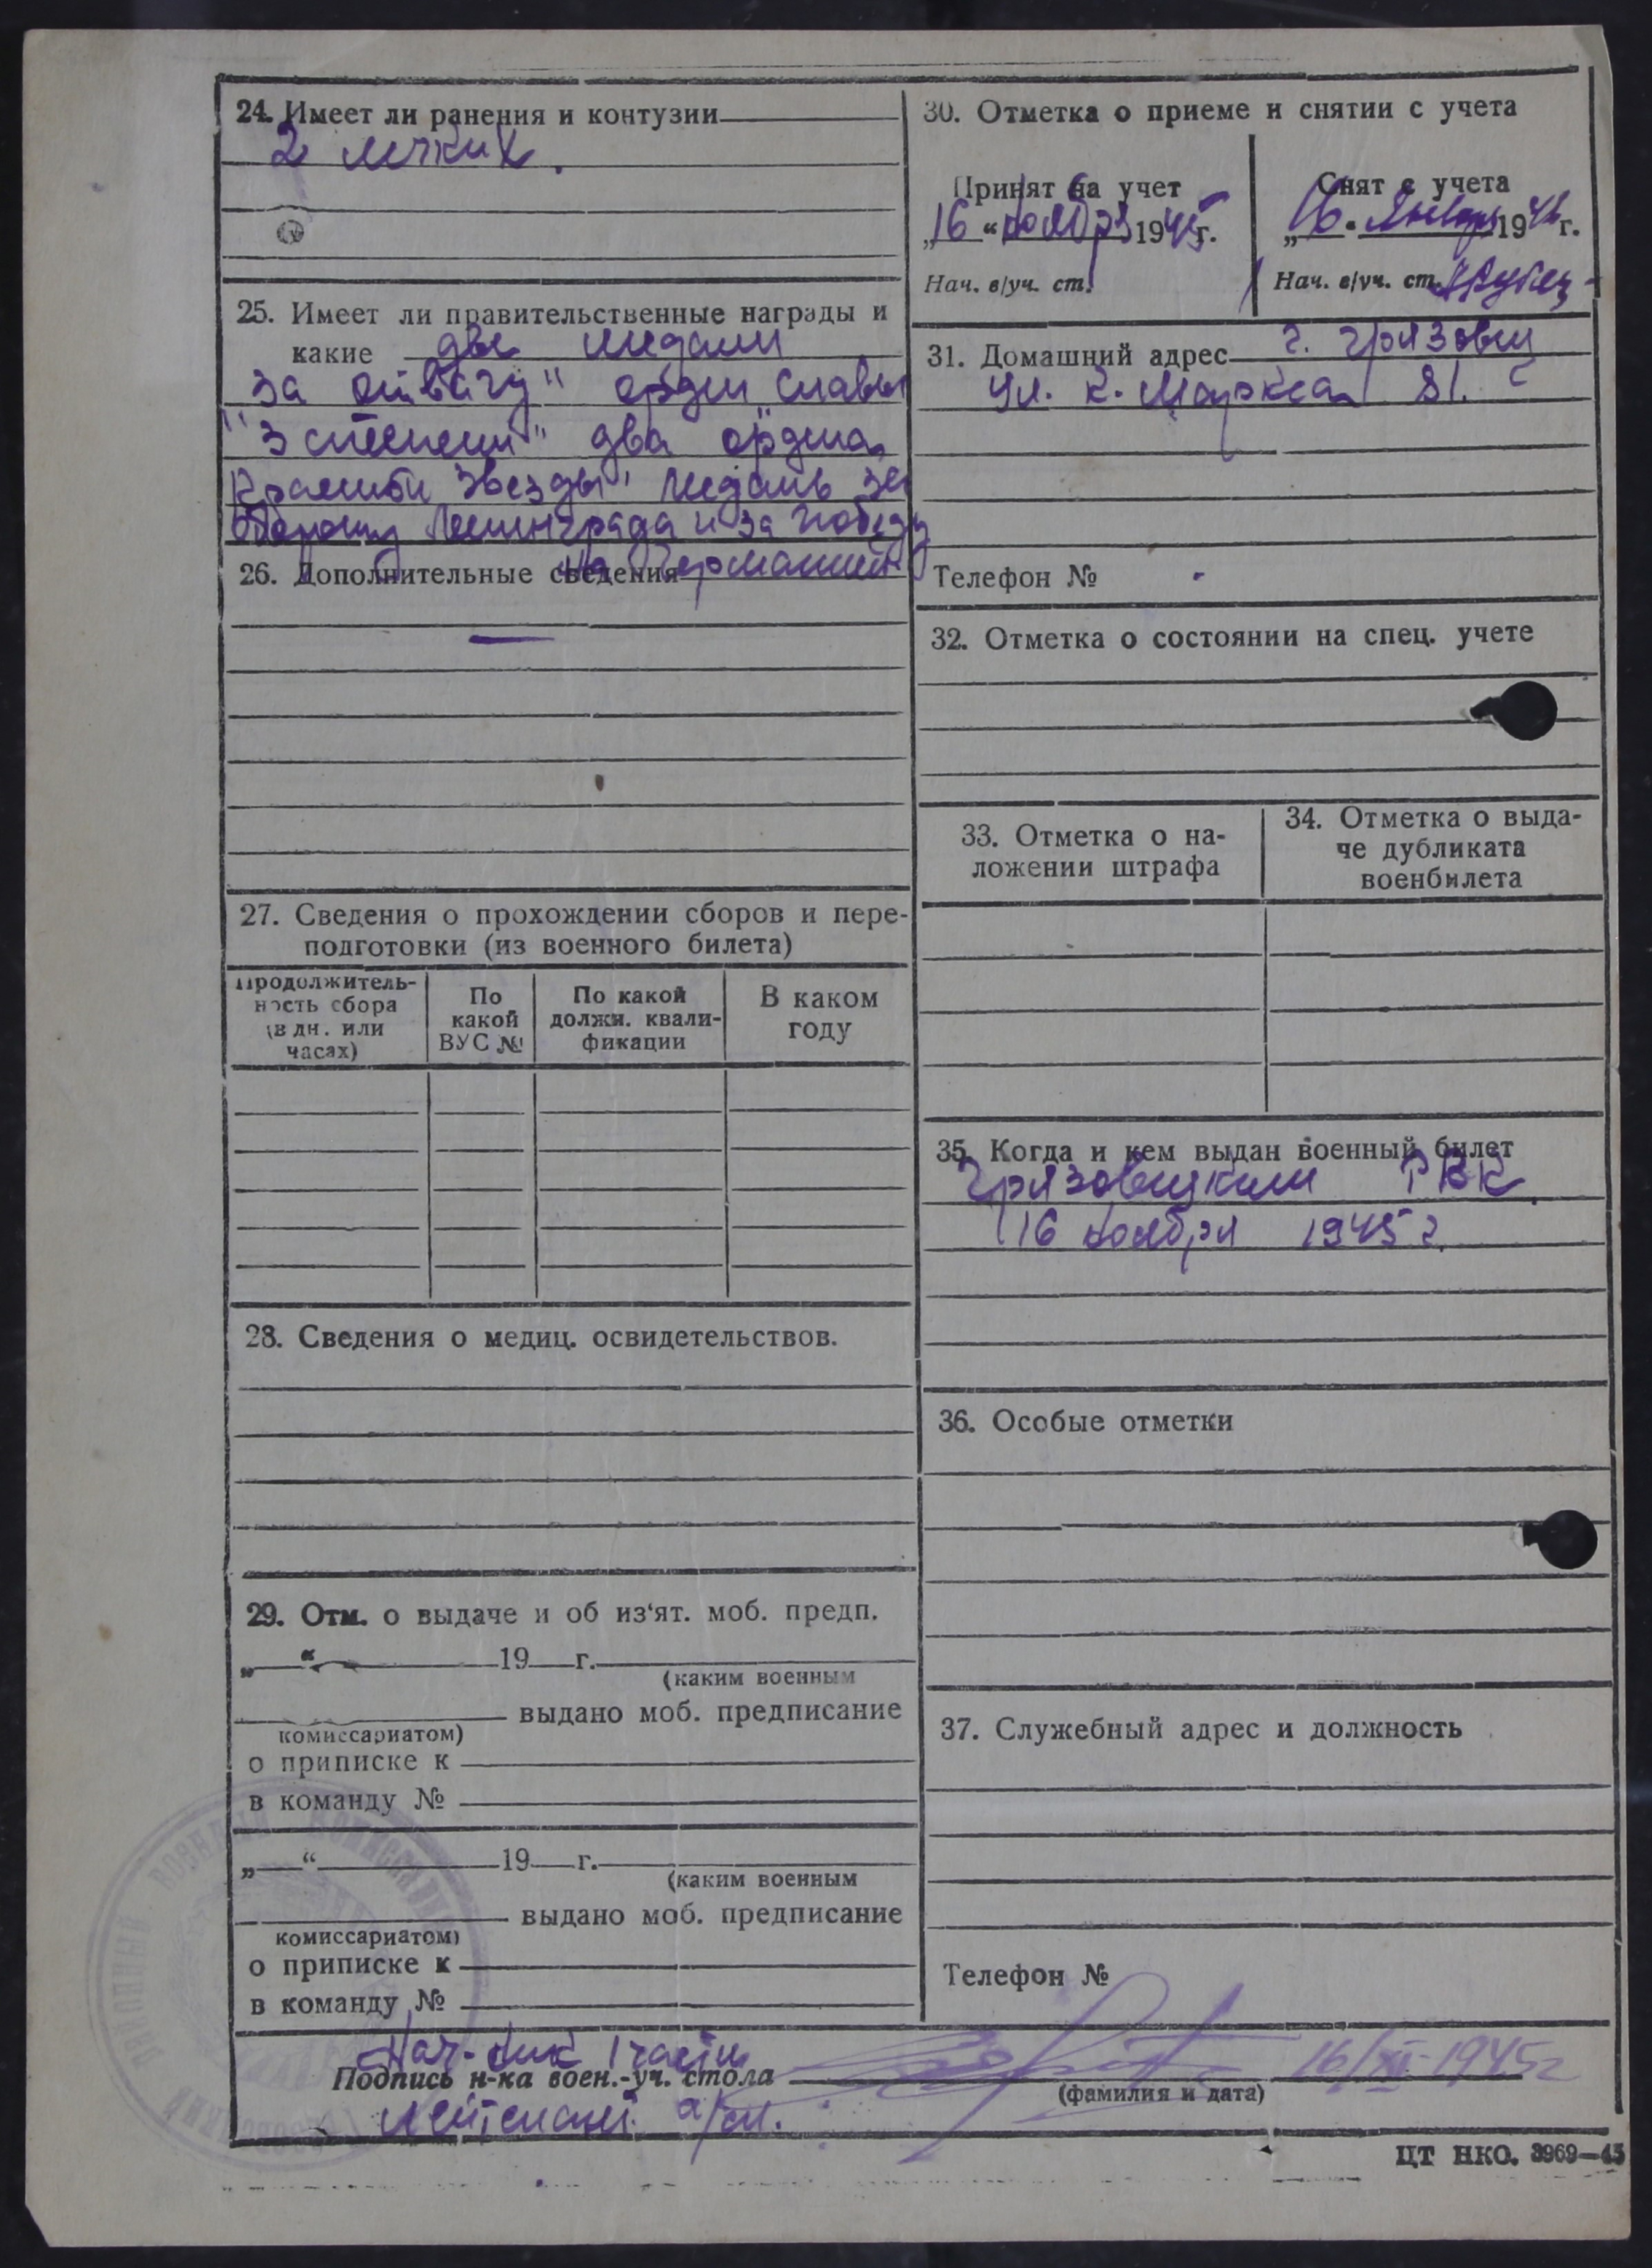 24. Имеет ли ранения и контузии
2 легких.
25. Имеет ли правительственные награды и
какие две медали
"за отвагу" орден "славы
3 степени" два ордена
Красной звезды, медаль за
оборону Ленинграда и за победу
на Германией
26. Дополнительные сведения
—
27. Сведения о прохождении сборов и пере-
подготовки (из военного билета)
Продолжитель-
ность сбора
(в дн. или
часах)
По
какой
ВУС №
По какой
должн. квали-
фикации
В каком
году
28. Сведения о медиц. освидетельствов.
29. Отм. о выдаче и об из‘ят. моб. предп.
„ “ 19 г.
(каким военным
выдано моб. предписание
комиссариатом)
о приписке к
в команду №
„ “ 19 г.
(каким военным
выдано моб. предписание
комиссариатом)
о приписке к
в команду №
30. Отметка о приеме и снятии с учета
Принят на учет
„16“ ноября 1945г.
Нач. в/уч. ст.
Снят с учета
„16“ Январь 194 г.
Нач. в/уч. ст.
31. Домашний адрес г. Грязовец
ул. К. Маркса 81.
Телефон № -
32. Отметка о состоянии на спец. учете
33. Отметка о на-
ложении штрафа
34. Отметка о выда-
че дубликата
военбилета
35. Когда и кем выдан военный билет
Грязовецким РВК.
16 ноября 1945 г.
36. Особые отметки
37. Служебный адрес и должность
Телефон №
Нач-ник 1 части
Подпись н-ка воен.-уч. стола 16/XI-1945г
(фамилия и дата)
лейтенант а/сл.
ЦТ НКО. 3969—45